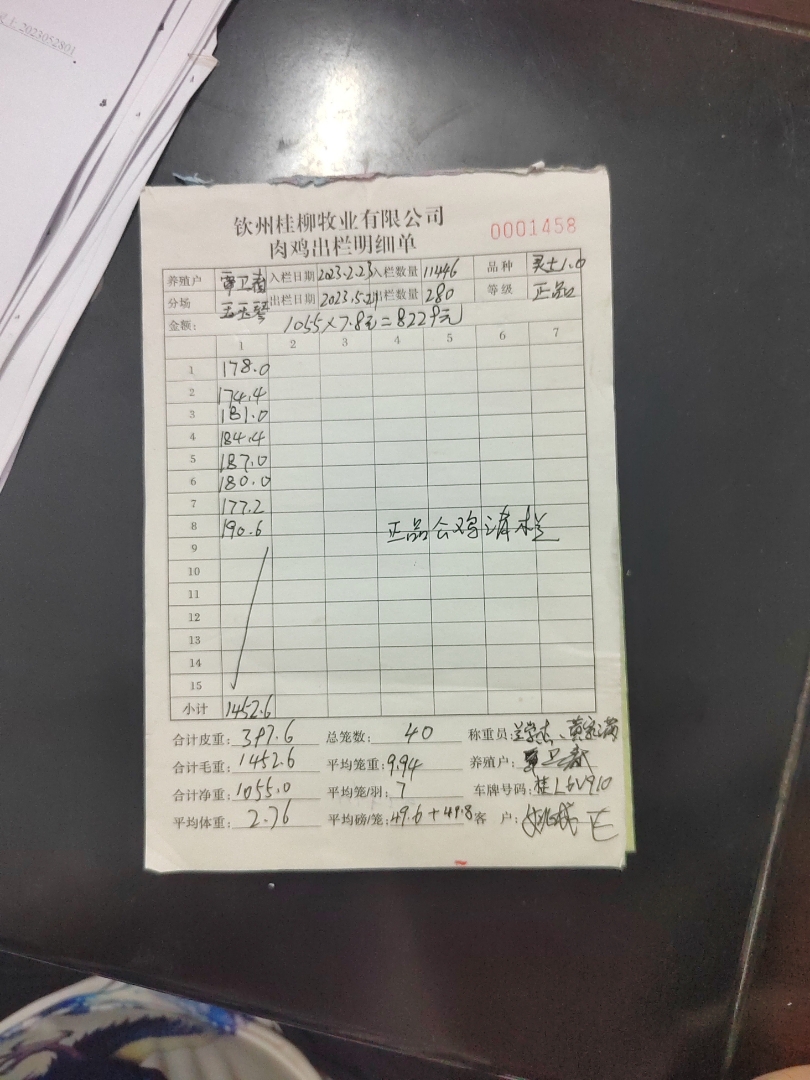 2023052801
钦州桂柳牧业有限公司
肉鸡出栏明细单
0001458
养殖户 覃卫南 入栏日期 2023.2.23 入栏数量 11446 品种 灵土1.0
分场 出栏日期 2023.5.29 出栏数量 280 等级 正品
金额: 1055×7.8元=8229元
1 2 3 4 5 6 7
1 178.0
2 174.4
3 181.0
4 184.4
5 187.0
6 180.0
7 177.2
8 190.6 正品公鸡清栏
9
10
11
12
13
14
15
小计 1452.6
合计皮重: 397.6 总笼数: 40 称重员:
合计毛重: 1452.6 平均笼重: 9.94 养殖户:
合计净重: 1055.0 平均笼/羽: 7 车牌号码: 桂L6V910
平均体重: 2.76 平均磅/笼: 49.6+49.8 客户: